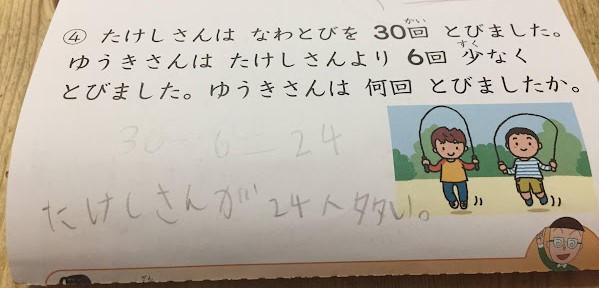 ④ たけしさんは なわとびを 30回 とびました。
ゆうきさんは たけしさんより 6回 少なく
とびました。ゆうきさんは 何回 とびましたか。
30 6 24
たけしさんが 24人多い。